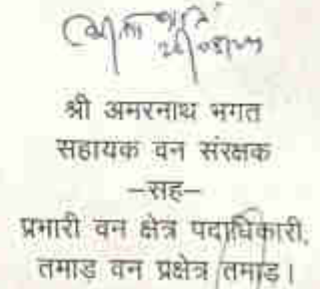 श्री अमरनाथ भगत
सहायक वन संरक्षक
–सह–
प्रभारी वन क्षेत्र पदाधिकारी,
तमाड़ वन प्रक्षेत्र तमाड़।